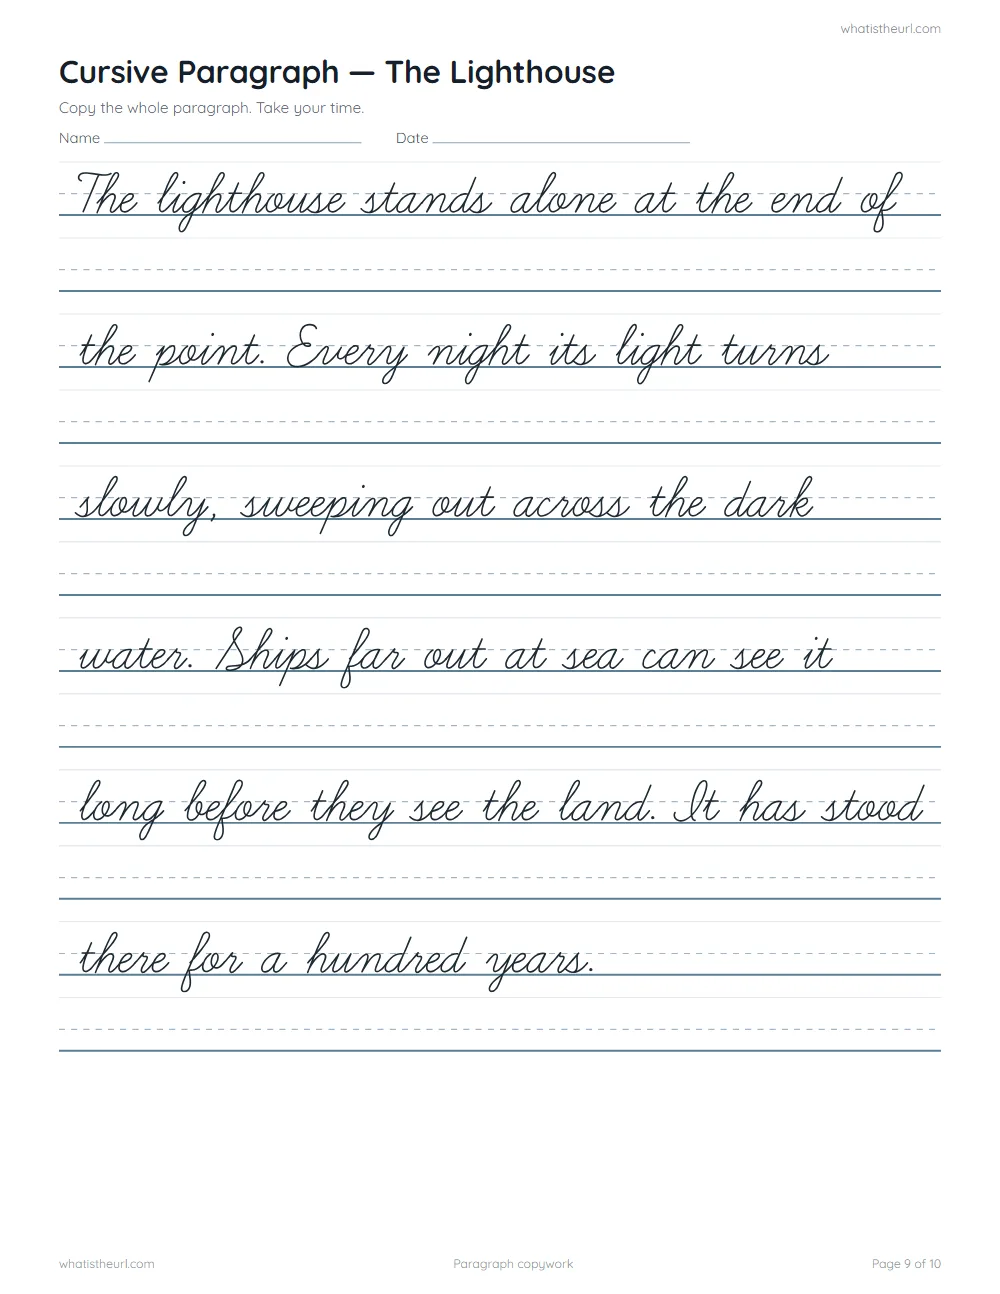 whatistheurl.com
Cursive Paragraph — The Lighthouse
Copy the whole paragraph. Take your time.
Name Date
The lighthouse stands alone at the end of
the point. Every night its light turns
slowly, sweeping out across the dark
water. Ships far out at sea can see it
long before they see the land. It has stood
there for a hundred years.
whatistheurl.com Paragraph copywork Page 9 of 10